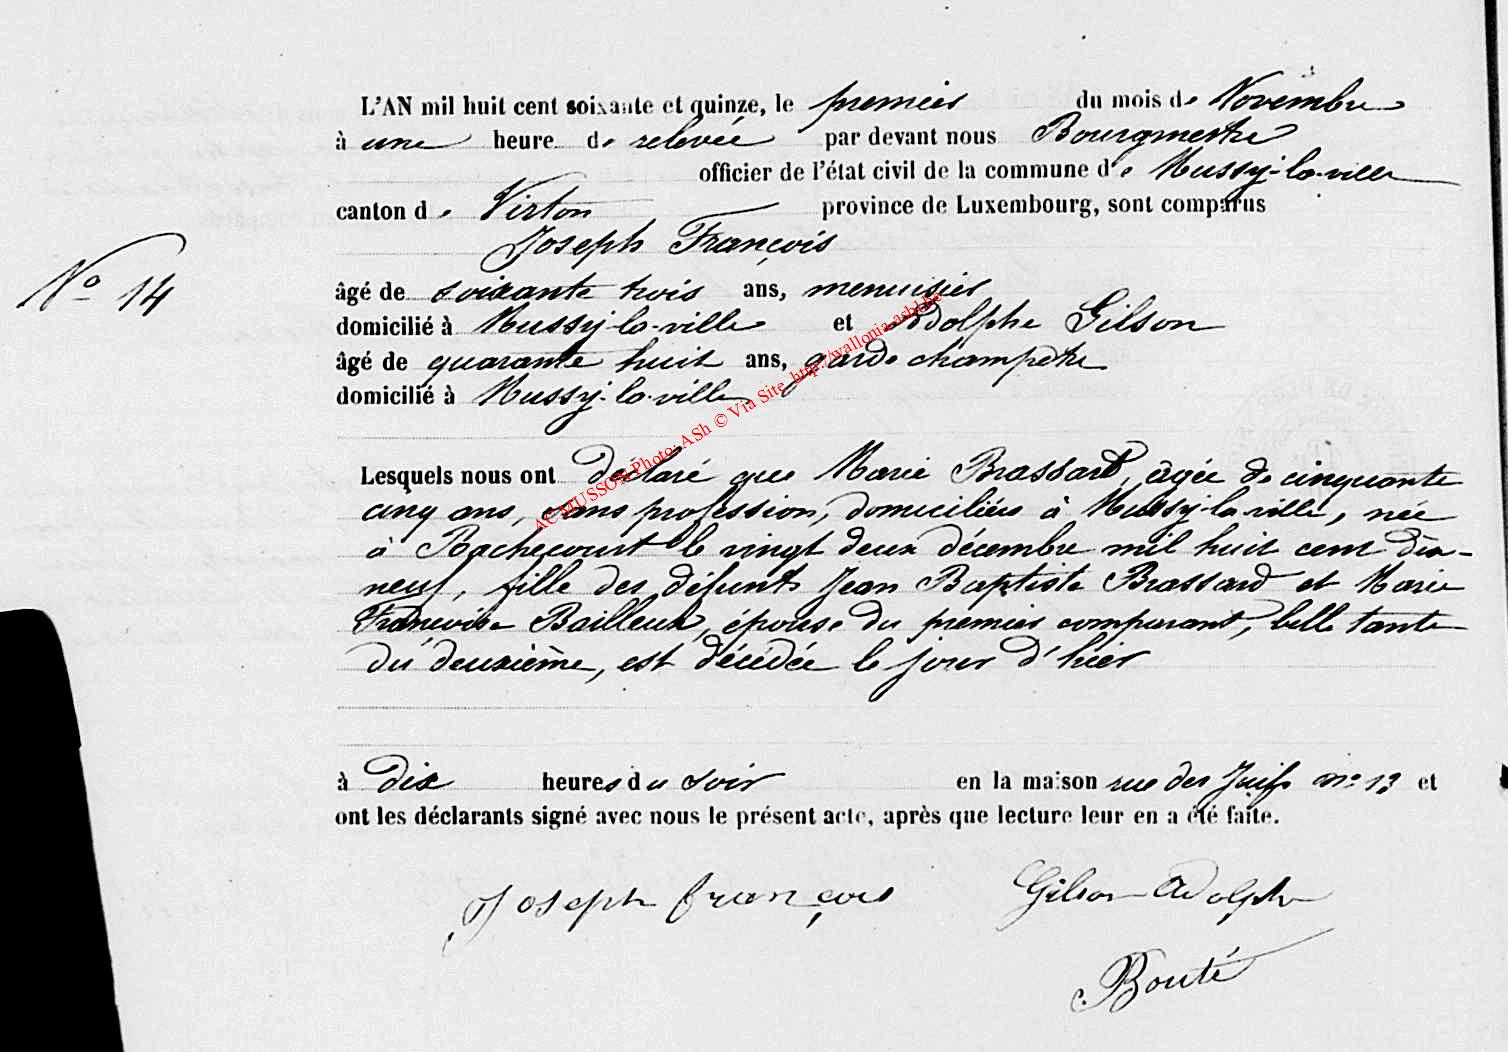 L'AN mil huit cent soixante et quinze, le premier du mois de Novembre
à une heure de relevée par devant nous Bourgmestre
officier de l'état civil de la commune de Mussy-la-ville
canton de Virton province de Luxembourg, sont comparus
Joseph François
N° 14
âgé de soixante trois ans, menuisier
domicilié à Mussy-la-ville et Adolphe Gilson
âgé de quarante huit ans, garde champêtre
domicilié à Mussy-la-ville
AC MUSSON Photo: ASh © Via Site http://wallonia-asbl.be
Lesquels nous ont déclaré que Marie Brassard, âgée de cinquante
cinq ans, sans profession, domiciliée à Mussy-la-ville, née
à Rachecourt le vingt deux décembre mil huit cent dix-
neuf, fille des défunts Jean Baptiste Brassard et Marie
Françoise Bailleux, épouse du premier comparant, belle tante
du deuxième, est décédée le jour d'hier
à dix heures du soir en la maison rue des Juifs n° 13 et
ont les déclarants signé avec nous le présent acte, après que lecture leur en a été faite.
Joseph françois Gilson Adolphe
Bouté